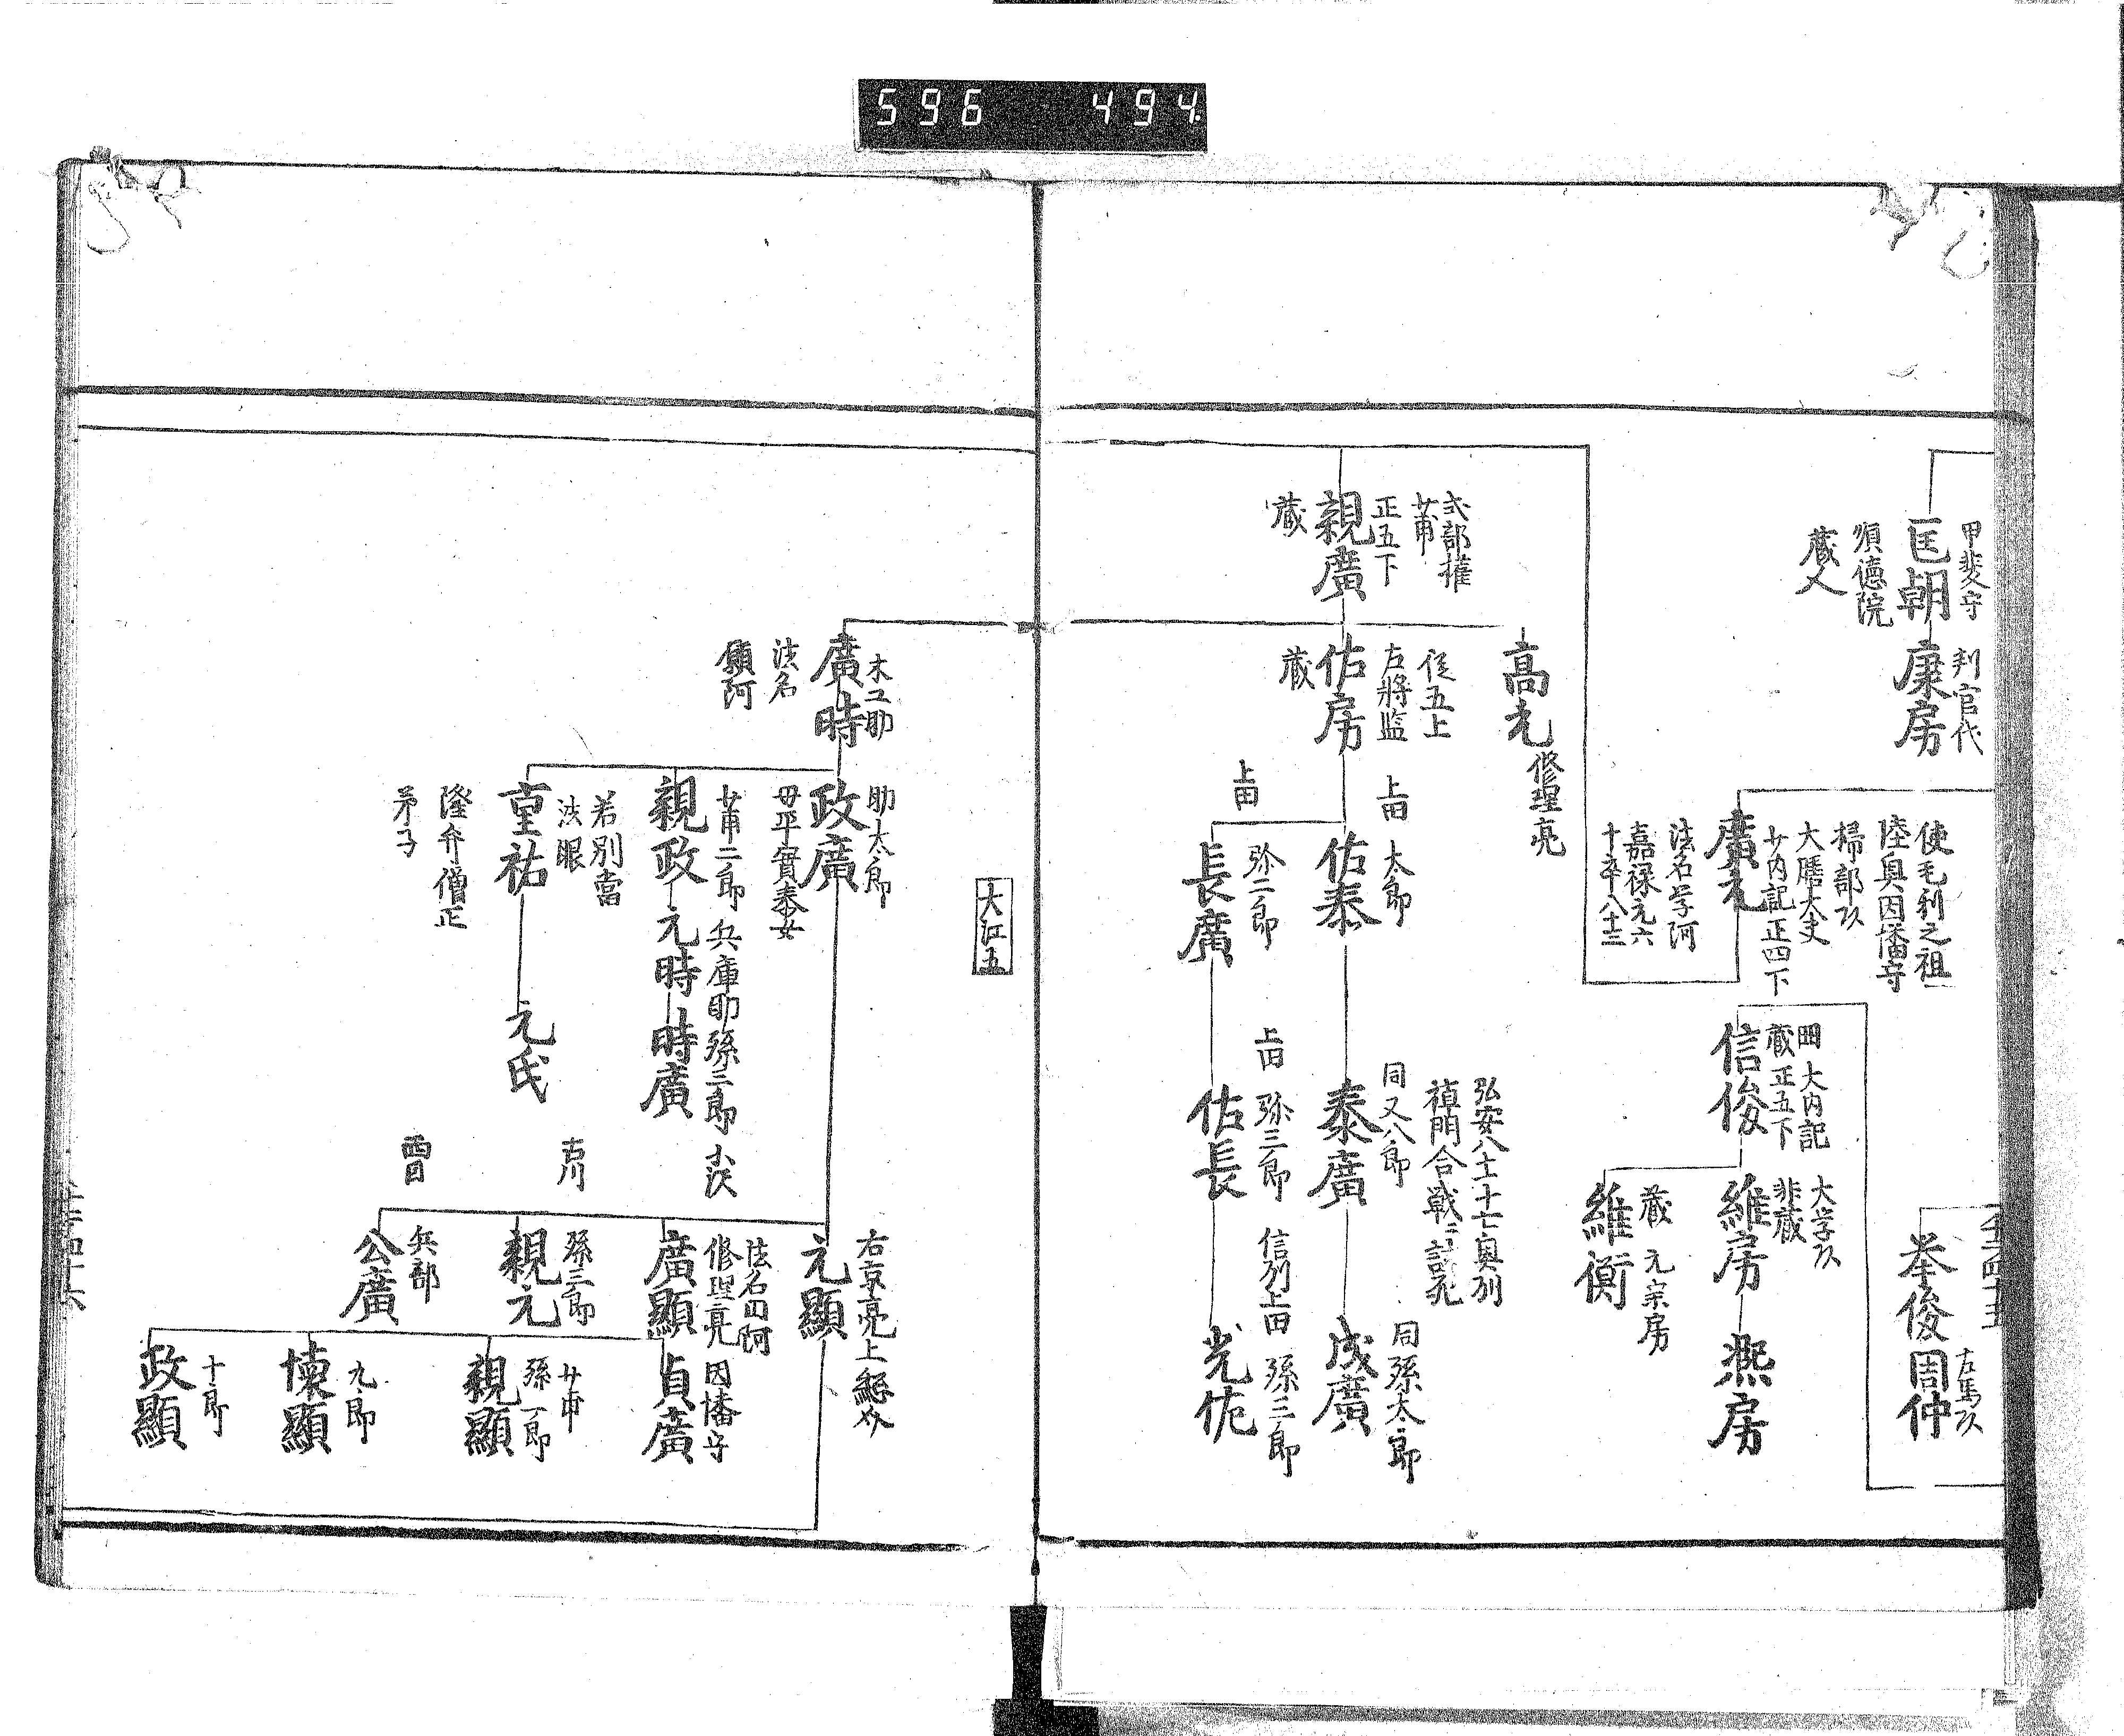 596 494
甲斐守
匡朝
順德院
蔵人
判官代
廉房
使毛利之祖
陸奥因幡守
掃部以
大膳大夫
廾内記正四下
廣元
法名学阿
嘉禄元六
十卒八十三
四大内記
蔵正五下
信俊
大学以
非蔵
維房
燕房
蔵 元宗房
維衡
挙俊
左馬以
周仲
式部權
廾甫
正五下
親廣
蔵
高元
修理亮
従五上
左將監
佑房
蔵
上田 太郎
佑泰
上田
弥二郎
長廣
弘安八士十七奥列
禎門合戦ニ討死
同又八郎
泰廣
上田 弥三郎
佑長
同孫太郎
成廣
信列上田 孫三郎
光佑
大江五
木工助
廣時
法名
願阿
助太郎
政廣
母平實泰女
廾甫二郎
親政
兵庫助
元時
孫三郎
時廣
若別當
法眼
重祐
隆弁僧正
弟子
元氏
右京亮上総介
元顯
法名田阿
修理亮
廣顯
古川
孫三郎
親元
兵部
公廣
因幡守
貞廣
廾甫
孫一郎
親顯
九郎
懐顯
十郎
政顯